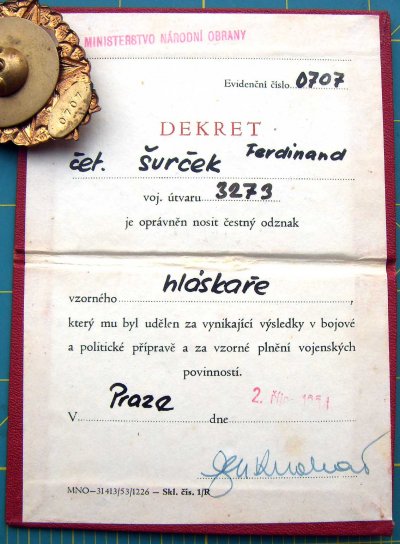 MINISTERSTVO NÁRODNÍ OBRANY
0707
Evidenční číslo 0707
DEKRET
čet. Šurček Ferdinand
voj. útvaru 3273
je oprávněn nosit čestný odznak
vzorného hláskaře,
který mu byl udělen za vynikající výsledky v bojové
a politické přípravě a za vzorné plnění vojenských
povinností.
V Praze dne 2. říj. 1954
MNO—31413/53/1226 — Skl. čís. 1/R